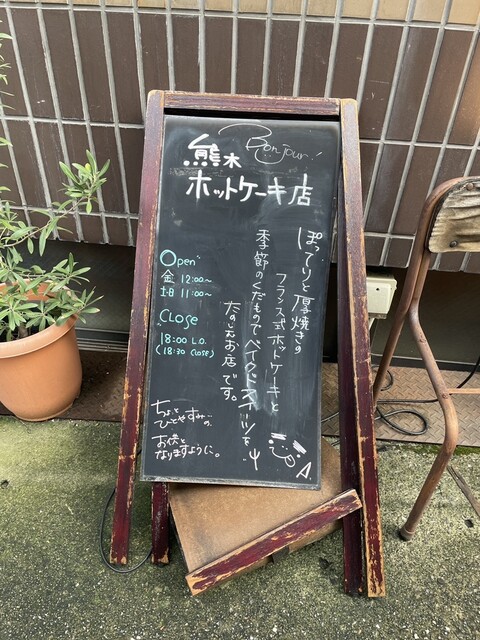 Bonjour!
熊木
ホットケーキ店
ぽってりと厚焼きの
フランス式ホットケーキと
季節のくだもので ベイクドスイーツを
たのしむお店です。
Open
金 12:00~
土日 11:00~
CLose
18:00 L.O.
(18:30 CLOSE)
ちょっと
ひとやすみの、
お供と
なりますように。
A.